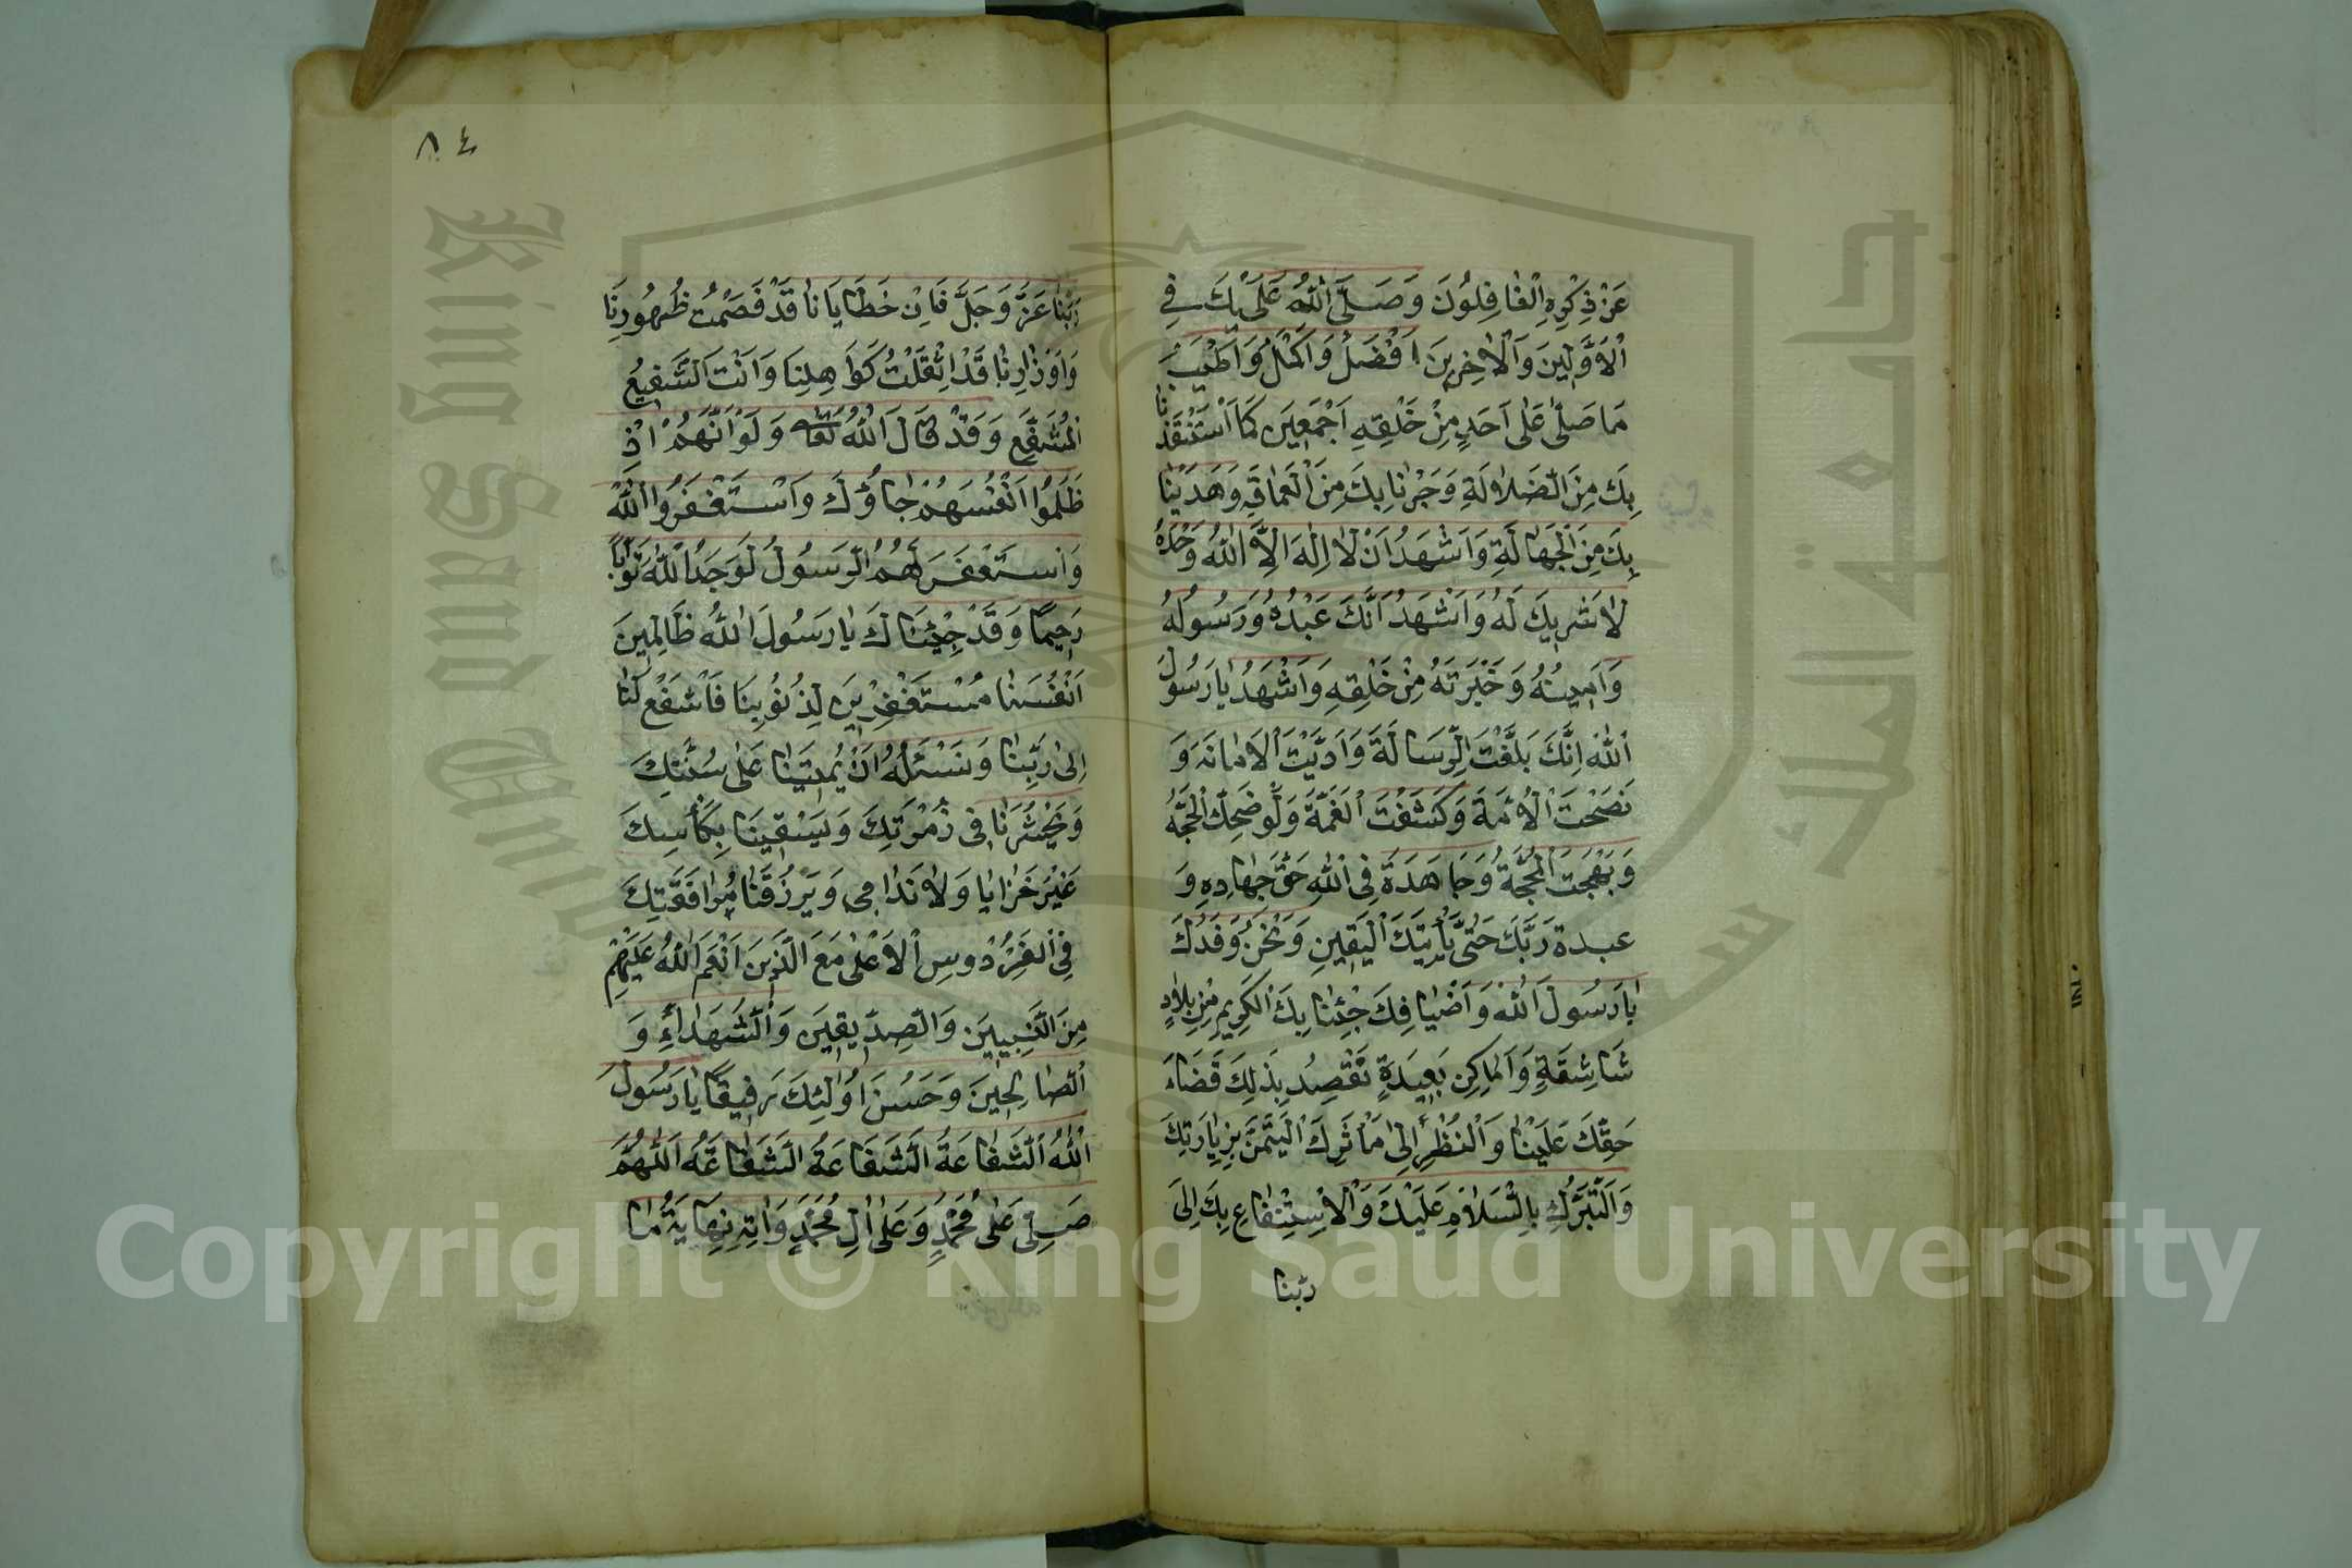 عَنْ ذِكْرِهِ الْغَافِلُونَ وَصَلَّى اللهُ عَلَيْكَ فِي
الْاَوَّلِينَ وَالْاٰخِرِينَ اَفْضَلُ وَاَكْمَلُ وَاَطْيَبَ
مَا صَلّٰى عَلٰى اَحَدٍ مِنْ خَلْقِهِ اَجْمَعِينَ كَمَا اَسْتَنْقَذَنَا
بِكَ مِنَ الضَّلَالَةِ وَجَرْنَا بِكَ مِنَ الْعَمَاقَةِ وَهَدَيْنَا
بِكَ مِنَ الْجَهَالَةِ وَاَشْهَدُ اَنْ لَا اِلٰهَ اِلَّا اللهُ وَحْدَهُ
لَا شَرِيكَ لَهُ وَاَشْهَدُ اَنَّكَ عَبْدُهُ وَرَسُولُهُ
وَاَمِينُهُ وَخَيْرَتَهُ مِنْ خَلْقِهِ وَاَشْهَدُ يَا رَسُولَ
اللهِ اِنَّكَ بَلَّغْتَ الرِّسَالَةَ وَاَدَّيْتَ الْاَمَانَهَ وَ
نَصَحْتَ الْاُمَّةَ وَكَشَفْتَ الْغَمَّةَ وَلَوْضَحِكَ الْحَجَّهُ
وَبَهْجَتَ الْحُجَّةُ وَجَاهَدَةَ فِي اللهِ حَقَّ جِهَادِهِ وَ
عبدة رَبَّكَ حَتّٰى يَأْتِيَكَ الْيَقِينِ وَنَحْنُ وَفَدُكَ
يَا رَسُولَ اللهِ وَاَضْيَافِكَ جِئْنَا بِكَ الْكَرِيمِ مِنْ بِلَادٍ
شَاسِقَةٍ وَاَمَاكِنٍ بَعِيدَةٍ نَقْصِدُ بِذٰلِكَ قَضَاءَ
حَقِّكَ عَلَيْنَا وَالْنَظْرِ اِلٰى مَاْثَرِكَ الْيَتَمَّنَ بِزِيَارَتِكَ
وَالتَّبَرُّكِ بِالسَّلَامِ عَلَيْكَ وَالْاِسْتِنْفَاعِ بِكَ اِلٰى
ربّنا
٨٤
رَبِّنَا عَزَّ وَجَلَّ فَاِنَّ خَطَايَانَا قَدْ قَصَمْتُ ظُهُورِنَا
وَاَوْزَارِنَا قَدْ اثْقَلْتُ كَوَاهِلِنَا وَاَنْتَ الشَّفِيعُ
الْمُشَفَّعِ وَقَدْ قَالَ اللهُ تَعَالٰى وَلَوْ اَنَّهُمْ اِذْ
ظَلَمُوا اَنْفُسَهُمْ جَاؤُكَ وَاسْتَغْفَرُوا اللهَ
وَاسْتَغْفَرَ لَهُمُ الرَّسُولُ لَوَجَدُ اللهَ تَوَّابًا
رَحِيمًا وَقَدْ جِئْنَاكَ يَا رَسُولَ اللهِ ظَالِمِينَ
اَنْفُسَنَا مُسْتَغْفِرِينَ لِذُنُوبِنَا فَاَشْفَعْ لَنَا
اِلٰى رَبِّنَا وَنَسْئَلُهُ اَنْ يُمِيتَنَا عَلٰى سُنَّتِكَ
وَيَحْشُرَنَا فِي زُمْرَتِكَ وَيَسْقِينَا بِكَأْسِكَ
غَيْرَ خَزَايَا وَلَا نَدَامٰى وَيَرْزُقَنَا مُرَافَقَتِكَ
فِي الْفِرْدَوْسِ الْاَعْلٰى مَعَ الَّذِينَ اَنْعَمَ اللهُ عَلَيْهِمْ
مِنَ النَّبِيِينَ وَالصِّدِّيقِينَ وَالشُّهَدَاءِ وَ
الصَّالِحِينَ وَحَسُنَ اُولٰئِكَ رَفِيقًا يَا رَسُولَ
اللهُ اَلشَّفَاعَةُ الشَّفَاعَةُ الشَّفَاعَهُ اَللّٰهُمَّ
صَلِّى عَلٰى مُحَمَّدٍ وَعَلٰى اٰلِ مُحَمَّدٍ وَاٰتِهِ نِهَايَةُ مَا
King Saud University
جامعة الملك سعود
Copyright © King Saud University